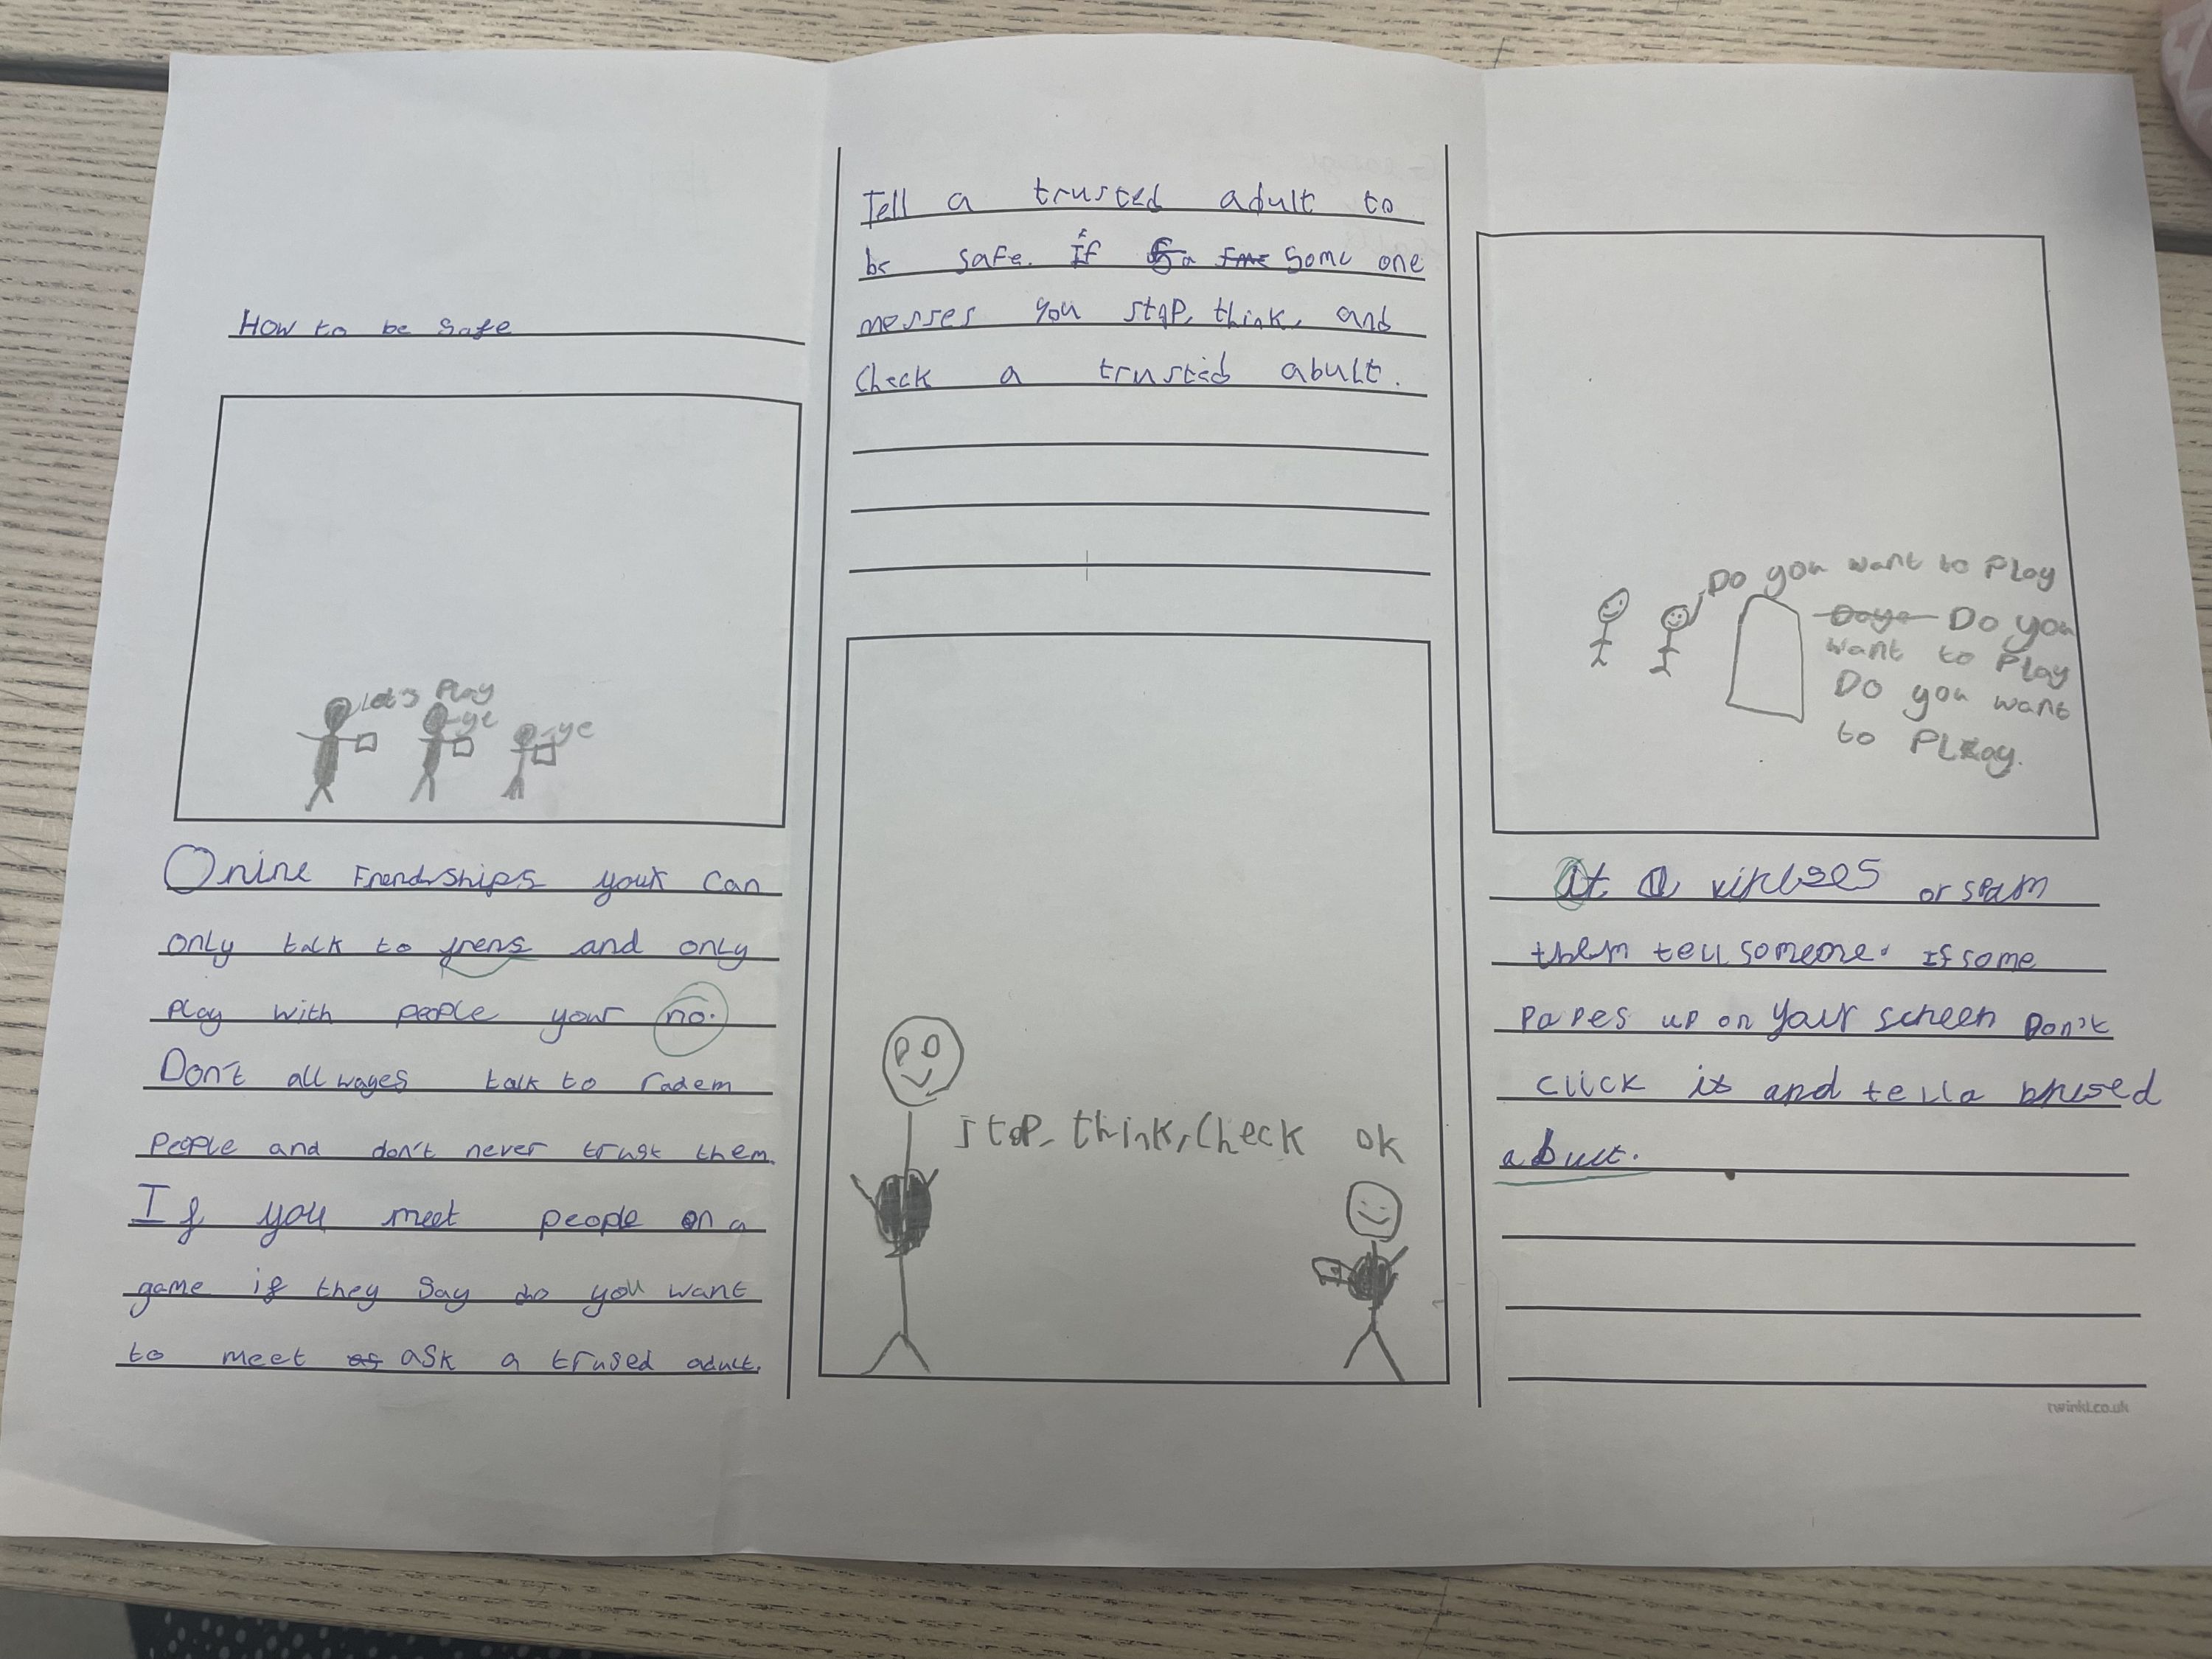 How to be safe
Let's Play
ye
ye
Onine Frendships your can
only talk to frens and only
play with people your no.
Don't allwayes talk to radem
people and don't never trust them.
If you meet people on a
game if they say do you want
to meet as ask a trused adult.
Tell a trusted adult to
be safe. if some one
messes you stop, think, and
check a trusted abult.
stop, think, check ok
Do you want to Play
Do you
want to Play
Do you want
to Play.
At a or spam
them tell someone. If some
papes up on your screen Don't
click it and tell a trused
abult.
twinkl.co.uk